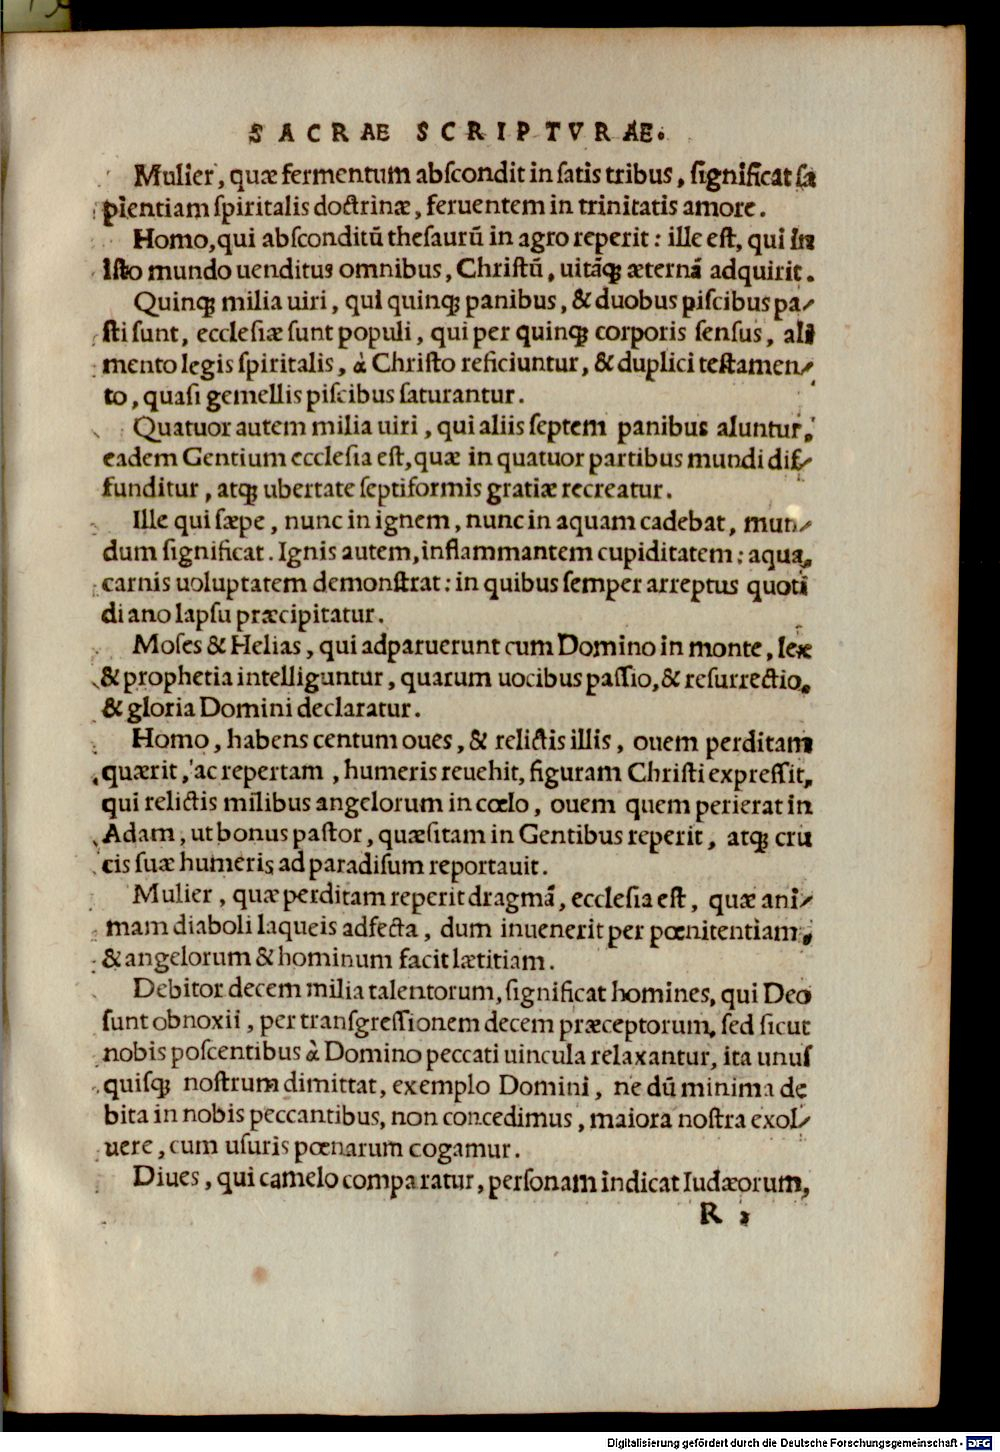 SACRAE SCRIPTVRAE.
Mulier, quæ fermentum abſcondit in ſatis tribus, ſignificat ſa
pientiam ſpiritalis doctrinæ, feruentem in trinitatis amore.
Homo, qui abſconditū theſaurū in agro reperit: ille eſt, qui in
iſto mundo uenditus omnibus, Chriſtū, uitāq; æternā adquirit.
Quinq; milia uiri, qui quinq; panibus, & duobus piſcibus pa-
ſti ſunt, eccleſiæ ſunt populi, qui per quinq; corporis ſenſus, ali
mento legis ſpiritalis, à Chriſto reficiuntur, & duplici teſtamen-
to, quaſi gemellis piſcibus ſaturantur.
Quatuor autem milia uiri, qui aliis ſeptem panibus aluntur,
eadem Gentium eccleſia eſt, quæ in quatuor partibus mundi dif-
funditur, atq; ubertate ſeptiformis gratiæ recreatur.
Ille qui ſæpe, nunc in ignem, nunc in aquam cadebat, mun-
dum ſignificat. Ignis autem, inflammantem cupiditatem: aqua,
carnis uoluptatem demonſtrat: in quibus ſemper arreptus quoti
diano lapſu præcipitatur.
Moſes & Helias, qui adparuerunt cum Domino in monte, lex
& prophetia intelliguntur, quarum uocibus paſſio, & reſurrectio,
& gloria Domini declaratur.
Homo, habens centum oues, & relictis illis, ouem perditam
quærit, ac repertam, humeris reuehit, figuram Chriſti expreſſit,
qui relictis milibus angelorum in cœlo, ouem quem perierat in
Adam, ut bonus paſtor, quæſitam in Gentibus reperit, atq; cru
cis ſuæ humeris ad paradiſum reportauit.
Mulier, quæ perditam reperit dragmā, eccleſia eſt, quæ ani-
mam diaboli laqueis adfecta, dum inuenerit per pœnitentiam,
& angelorum & hominum facit lætitiam.
Debitor decem milia talentorum, ſignificat homines, qui Deo
ſunt obnoxii, per tranſgreſſionem decem præceptorum, ſed ſicut
nobis poſcentibus à Domino peccati uincula relaxantur, ita unuſ
quiſq; noſtrum dimittat, exemplo Domini, ne dū minima de
bita in nobis peccantibus, non concedimus, maiora noſtra exol-
uere, cum uſuris pœnarum cogamur.
Diues, qui camelo comparatur, perſonam indicat Iudæorum,
R 2
Digitalisierung gefördert durch die Deutsche Forschungsgemeinschaft - DFG